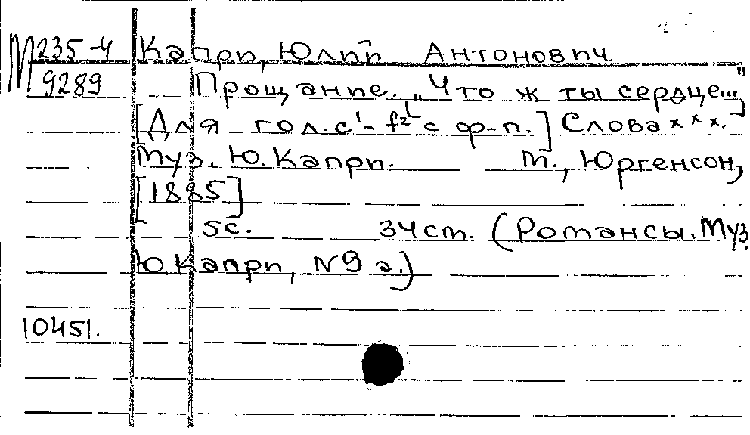 М 235-4 Капри, Юлий Антонович
9289 Прощание. „Что ж ты сердце..."
[Для гол. с¹-f² с ф-п.] Слова ххх.
Муз. Ю. Капри. М., Юргенсон,
[1885]
5с. 34ст. (Романсы. Муз.
Ю. Капри, N9 а.)
10451.